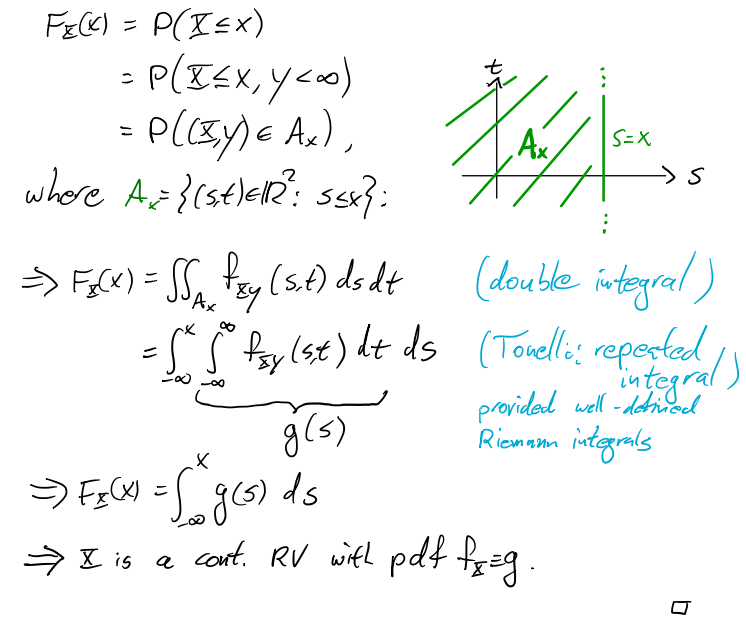 F_X(x) = P(X ≤ x)
= P(X ≤ x, Y < ∞)
= P((X,Y) ∈ A_x),
where A_x = {(s,t) ∈ ℝ²: s ≤ x}:
t
A_x
s=x
s
⇒ F_X(x) = ∬_{A_x} f_{XY}(s,t) ds dt (double integral)
= ∫_{-∞}^{x} ∫_{-∞}^{∞} f_{XY}(s,t) dt ds (Tonelli: repeated
integral)
g(s)
provided well-defined
Riemann integrals
⇒ F_X(x) = ∫_{-∞}^{x} g(s) ds
⇒ X is a cont. RV with pdf f_X ≡ g.
□